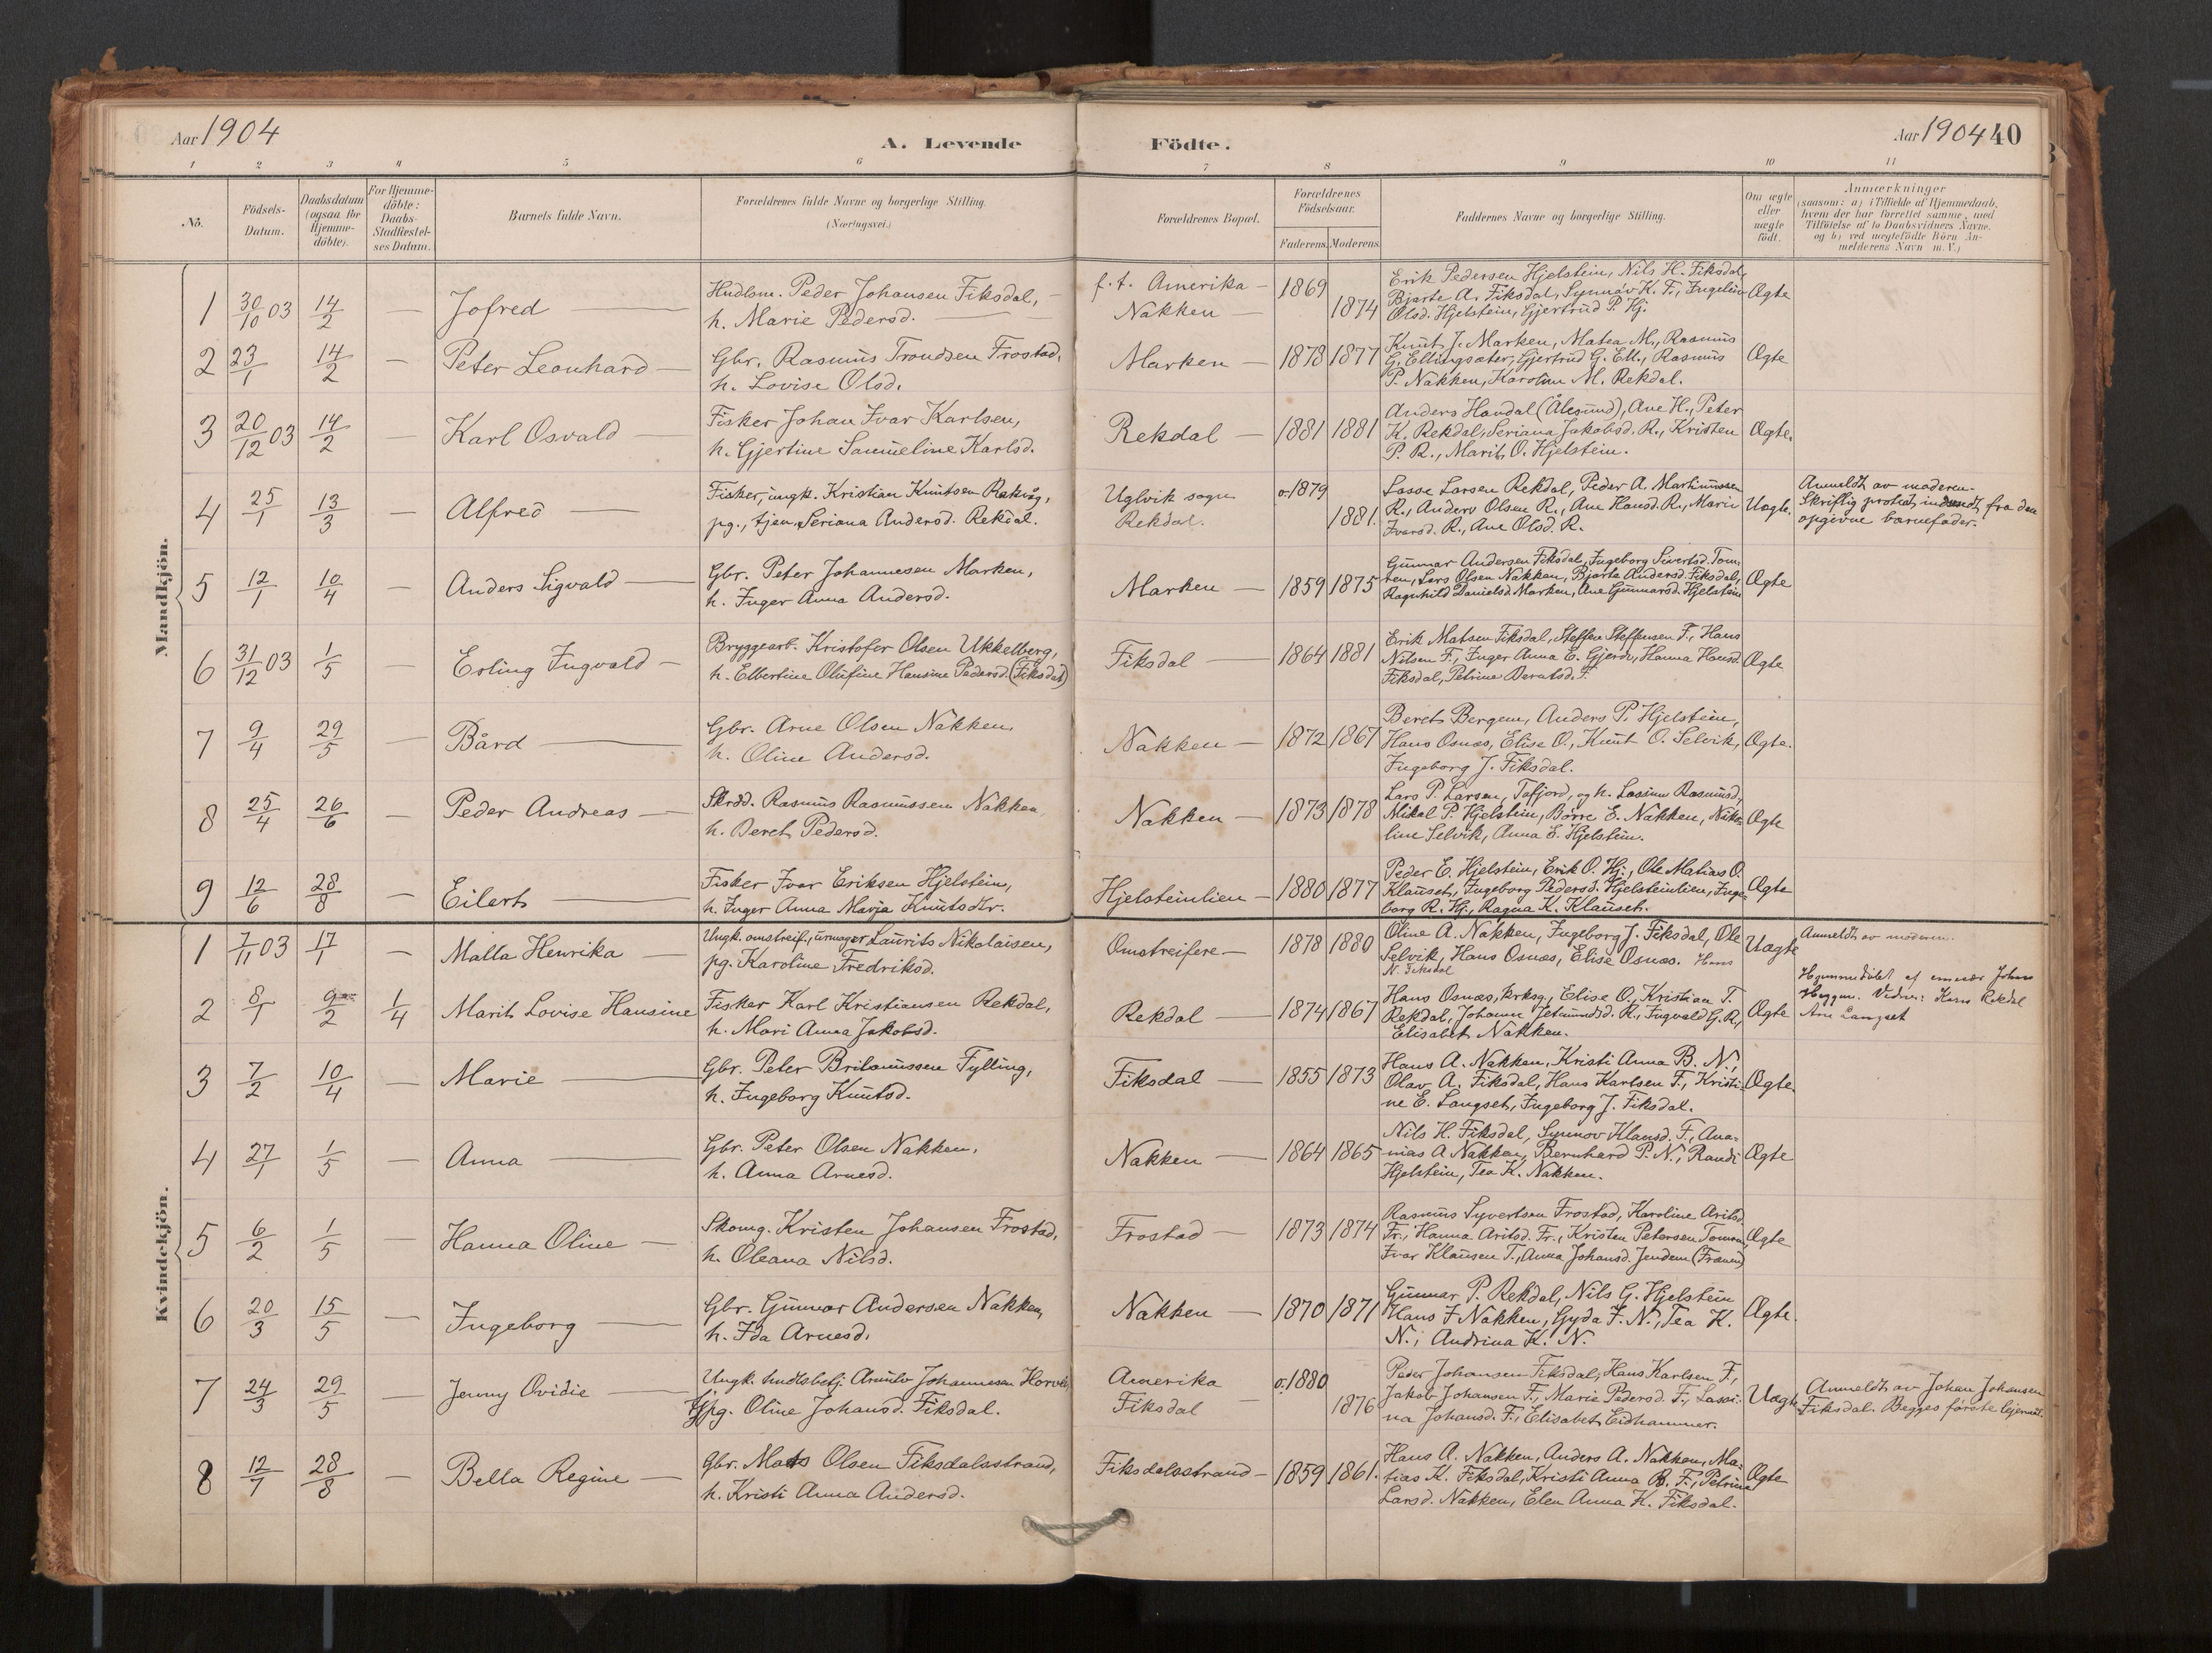 Aar 1904
A. Levende Födte.
Aar 1904 40
1 2 3 4 5 6 7 8 9 10 11
No.
Födsels-Datum.
Daabsdatum (ogsaa for Hjemme-döbte).
For Hjemme-döbte: Daabs-Stadfæstel-ses Datum.
Barnets fulde Navn.
Forældrenes fulde Navne og borgerlige Stilling. (Næringsvei.)
Forældrenes Bopæl.
Forældrenes Födselsaar.
Faderens. Moderens.
Faddernes Navne og borgerlige Stilling.
Om ægte eller uægte födt.
Anmærkninger
(saasom: a) i Tilfælde af Hjemmedaab, hvem der har forrettet samme, med Tilföielse af to Daabsvidners Navne, og b) ved uægtefödte Börn An-melderens Navn m.V.)
Mandkjön.
1 30/10 03 14/2 — Jofred — Hndlsm. Peder Johansen Fiksdal, — f.t. Amerika — 1869 Erik Pedersen Hjelstein, Nils H. Fiksdal,
h. Marie Pedersd. — Nakken — 1874 Bjarte A. Fiksdal, Synnøv K. F., Ingeleiv Ægte
Olsd. Hjelstein, Gjertrud P. Hj.
2 23/1 14/2 — Peter Leonhard — Gbr. Rasmus Trondsen Frostad, Marken — 1878 1877 Knut J. Marken, Matea M., Rasmus
h. Lovise Olsd. G. Ellingsæter, Gjertrud G. Ell., Rasmus Ægte
P. Nakken, Karoline M. Rekdal.
3 20/12 03 14/2 — Karl Osvald — Fisker Johan Ivar Karlsen, Rekdal — 1881 1881 Anders Handal (Ålesund), Ane H., Peter
h. Gjertine Samueline Karlsd. K. Rekdal, Seriana Jakobsd. R., Kristen Ægte.
P. R., Marit O. Hjelstein.
4 25/1 13/3 — Alfred — Fisker, ungk. Kristian Knutsen Rakvåg, Uglvik sogn o. 1879 Lasse Larsen Rekdal, Peder A. Martinussen Anmeldt av moderen.
pg., tjen. Seriana Andersd. Rekdal. Rekdal. 1881. R., Anders Olsen R., Ane Hansd. R., Marie Uægte. Skriflig protest indsendt fra den
Ivarsd. R., Ane Olsd. R. opgivne barnefader.
5 12/1 10/4 — Anders Sigvald — Gbr. Peter Johannesen Marken, Marken — 1859 1875 Gunnar Andersen Fiksdal, Ingeborg Sivertsd. Tom-
h. Inger Anna Andersd. ren, Lars Olsen Nakken, Bjarte Andersd. Fiksdal, Ægte
Ragnhild Danielsd. Marken, Ane Gunnarsd. Hjelstein
6 31/12 03 1/5 — Erling Ingvald — Bryggearb. Kristofer Olsen Ukkelberg, Fiksdal — 1864 1881 Erik Matsen Fiksdal, Steffen Steffensen F., Hans
h. Elbertine Olufine Hansine Pedersd. (Fiksdal) Nilsen F., Inger Anna E. Gjerde, Hanna Hansd. Ægte
Fiksdal, Petrine Berntsd. F.
7 9/4 29/5 — Bård — Gbr. Arne Olsen Nakken, Nakken — 1872 1867 Beret Bergem, Anders P. Hjelstein,
h. Oline Andersd. Hans Osnæs, Elise O., Knut O. Selvik, Ægte.
Ingeborg J. Fiksdal.
8 25/4 26/6 — Peder Andreas — Skrdd. Rasmus Rasmussen Nakken Nakken — 1873 1878 Lars P. Larsen, Tafjord, og h. Lasine Rasmusd,
h. Beret Pedersd. Mikal P. Hjelstein, Børre E. Nakken, Niko- Ægte
line Selvik, Anna E. Hjelstein.
9 12/6 28/8 — Eilert — Fisker Ivar Eriksen Hjelstein, Hjelsteinlien — 1880 1877 Peder E. Hjelstein, Erik O. Hj., Ole Matias O.
h. Inger Anna Marja Knutsdtr. Klauset, Ingeborg Pedersd. Hjelsteinlien, Inge- Ægte
borg R. Hj., Ragna K. Klauset.
Kvindekjön.
1 7/11 03 17/1 — Malla Henrika — Ungk. omstreif., urmager Laurits Nikolaisen, Omstreifere — 1878 1880 Oline A. Nakken, Ingeborg J. Fiksdal, Ole Uægte Anmeldt av moderen.
pg. Karoline Fredriksd. Selvik, Hans Osnæs, Elise Osnæs. Hans
N. Fiksdal
2 8/1 9/2 1/4 Marit Lovise Hansine Fisker Karl Kristiansen Rekdal, Rekdal — 1874 1867 Hans Osnæs, krksg., Elise O., Kristian T. Hjemmedöbt af John
h. Mari Anna Jakobsd. Rekdal, Johanne Jetmundsd. R., Ingvald G. R., Ægte Heggem. Vidner: Rekdal
Elisabet Nakken. Ane Langset
3 7/2 10/4 — Marie — Gbr. Peter Britanussen Fylling, Fiksdal — 1855 1873 Hans A. Nakken, Kristi Anna B. N.,
h. Ingeborg Knutsd. Olav A. Fiksdal, Hans Karlsen F., Kristi- Ægte
ne E. Langset, Ingeborg J. Fiksdal.
4 27/1 1/5 — Anna — Gbr. Peter Olsen Nakken, Nakken — 1864 1865 Nils H. Fiksdal, Synnøv Klausd. F., Ana-
h. Anna Arnesd. nias A Nakken, Bernhard P. N., Randi Ægte
Hjelstein, Tea K. Nakken.
5 6/2 1/5 — Hanna Oline — Skomg. Kristen Johansen Frostad, Frostad — 1873 1874 Rasmus Syvertsen Frostad, Karoline Aritsd.
h. Oleana Nilsd. Fr., Hanna Aritsd. Fr., Kristen Petersen Tomren, Ægte
Ivar Klausen T., Anna Johansd. Jendem (Fræna)
6 20/3 15/5 — Ingeborg — Gbr. Gunnar Andersen Nakken, Nakken — 1870 1871 Gunnar P. Rekdal, Nils G. Hjelstein
h. Ida Arnesd. Hans J Nakken, Gyda J. N., Tea K. Ægte.
N., Andrina K. N.
7 24/3 29/5 — Jenny Ovidie — Ungk. hndlsbetj. Johannesen Amerika o. 1880 Peder Johansen Fiksdal, Hans Karlsen F.,
pg. Oline Johansd. Fiksdal. Fiksdal — 1876 Jakob Johansen F., Marie Pedersd. F., Lassi- Uægte Anmeldt av Johan Johansen
na Johansd. F., Elisabet Eidhammer. Fiksdal. Begges første lejermål.
8 12/7 28/8 — Bella Regine — Gbr. Mats Olsen Fiksdalsstrand, Fiksdalsstrand — 1859 1861. Hans A. Nakken, Anders A. Nakken, Ma-
h. Kristi Anna Andersd. tias K. Fiksdal, Kristi Anna B. F., Petrina Ægte
Larsd. Nakken, Elen Anna K. Fiksdal.